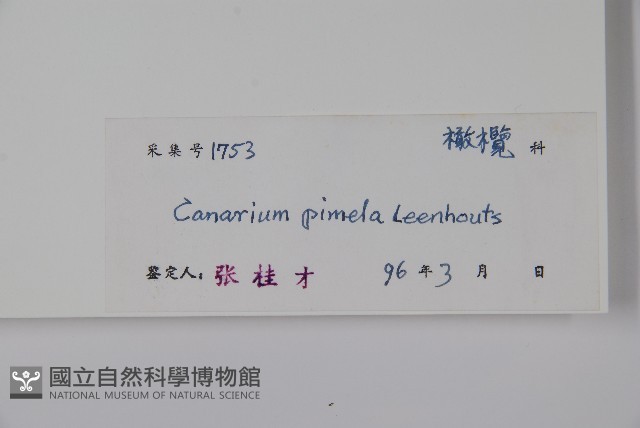 采集号 1753 橄欖 科
Canarium pimela Leenhouts
鉴定人: 张桂才 96 年 3 月 日
國立自然科學博物館
NATIONAL MUSEUM OF NATURAL SCIENCE